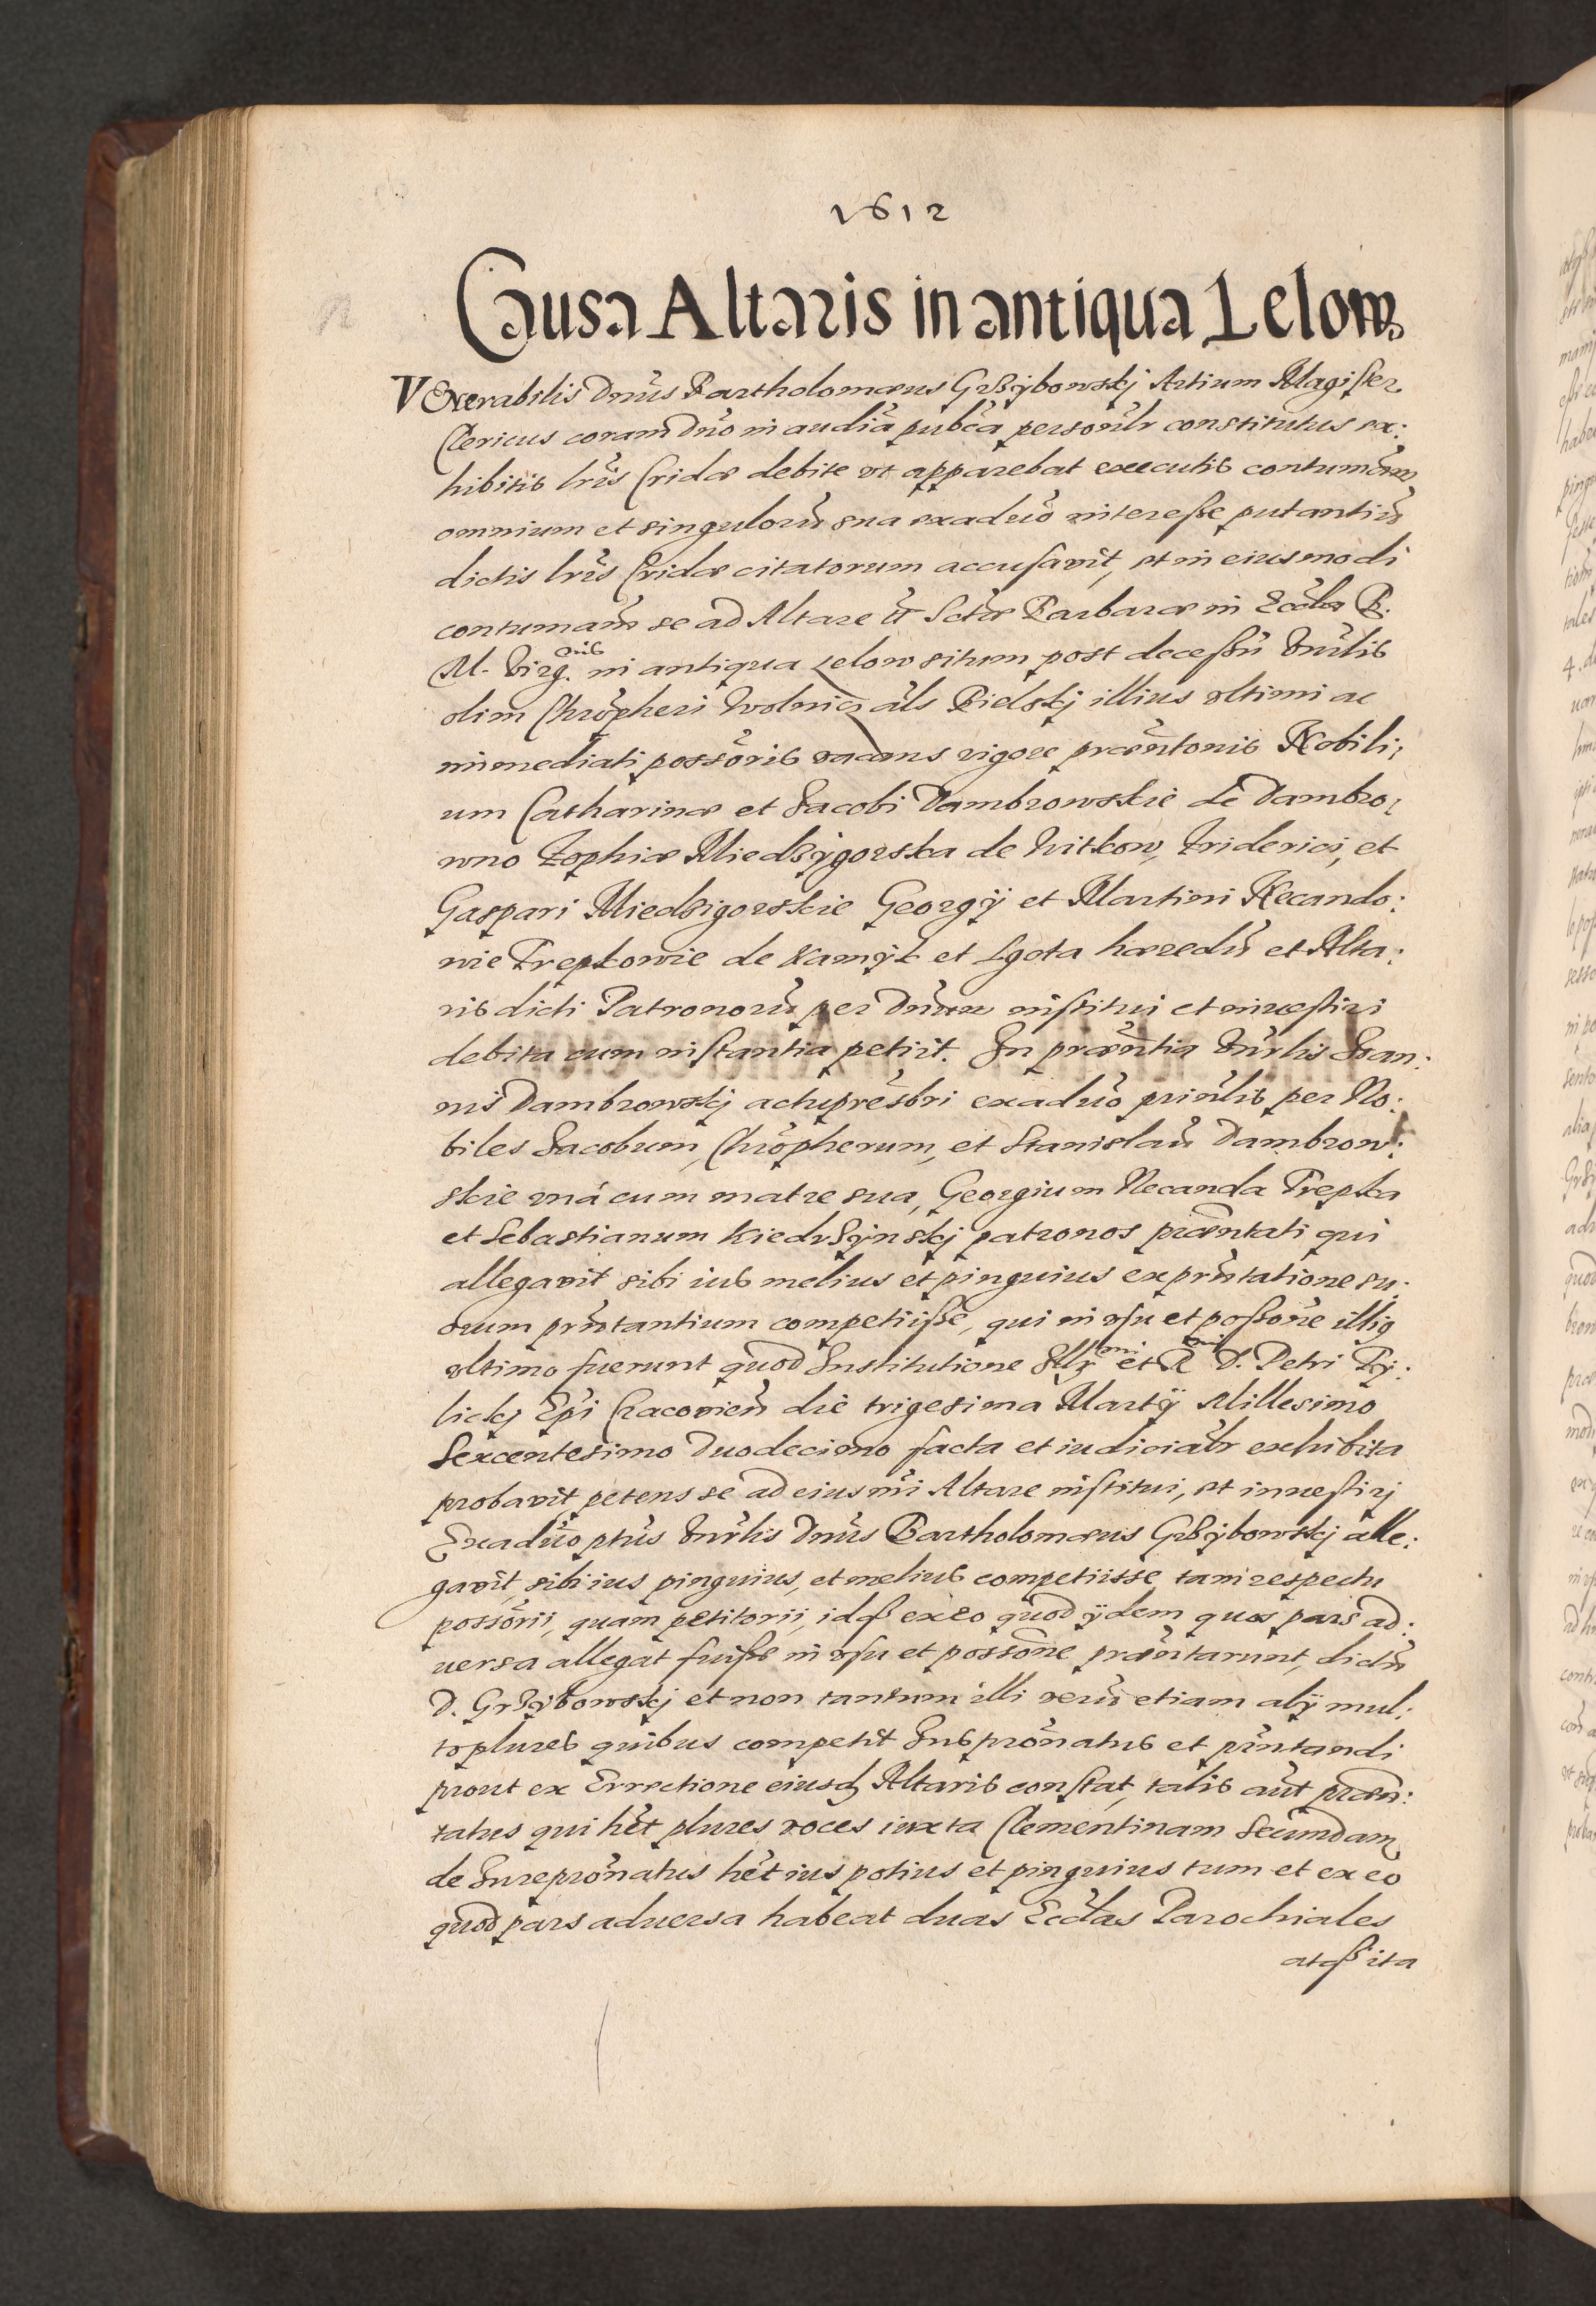 1612
Causa Altaris in antiqua Lelow.
VEnerabilis Dnus Bartholomæus Grzÿbowskj Artium Magister
Clericus coram Dno in audia pubca personlr constitutus ex:
hibitis lris Cridæ debite ut apparebat executis contumam
omnium et singulorũ sua exaduo interesse putantiũ
dictis lris Cridæ citatorum accusavit, et in eiusmodi
contumam se ad Altare tt Sctæ Barbaræ in Eccla B.
M. Virg.inis in antiqua Lelow situm post decessũ Vnrlis
olim Chrõpheri Wolnicj als Bielskj illius ultimi ac
immediati possoris vacans vigore præntonis Nobili:
um Catharinæ et Jacobi Dambrowskie de Dambro:
wno Zophiæ Miedzÿgorska de Witkow, Friderici, et
Gaspari Miedzigorskie Georgÿ et Martini Necando:
wie Trepkowie de Kamÿk et Lgota hæredũ et Alta:
ris dicti Patronorũ per Dnum institui et investiri
debita cum instantia petiit. In præntia Vnrlis Joan:
nis Dambrowskj actupresbri exaduo prinlis per No:
biles Jacobum, Chrõpherum, et Stanislaũ Dambrow:
skie unà cum matre sua, Georgium Necanda Trepka
et Sebastianum Kiedrzÿnskj patronos præntati qui
allegavit sibi ius melius et pinguius ex prntatione su:
orum prntantium competiisse, qui in usu et possone illiq
ultimo fuerunt quod Institutione Illmi et Rmi D. Petri Tÿ:
lickj Epi Cracovien die trigesima Martÿ Millesimo
Sexcentesimo Duodecimo facta et iudicialr exhibita
probavit petens se ad eiusmi Altare institui, et investirj
Exaduo ptus Vnrlis Dnus Bartholomæus Grzÿbowskj alle:
gavit, sibi ius pinguius, et melius competiisse tam respectu
possorii, quam petitorii, idq ex eo quod ÿdem quos pars ad:
uersa allegat fuisse in usu et possone præntarunt, dictũ
D. Grzÿbowskj et non tantum illi verũ etiam alÿ mul:
to plures quibus competit Iuspronatus et prntandi
prout ex Errectione eiusdq Altaris constat, talis aut præn:
tatus qui het plures voces iuxta Clementinam Secundam
de Iurepronatus het ius potius et pinguius tum et ex eo
quod pars aduersa habeat duas Ecclas Parochiales
atq ita